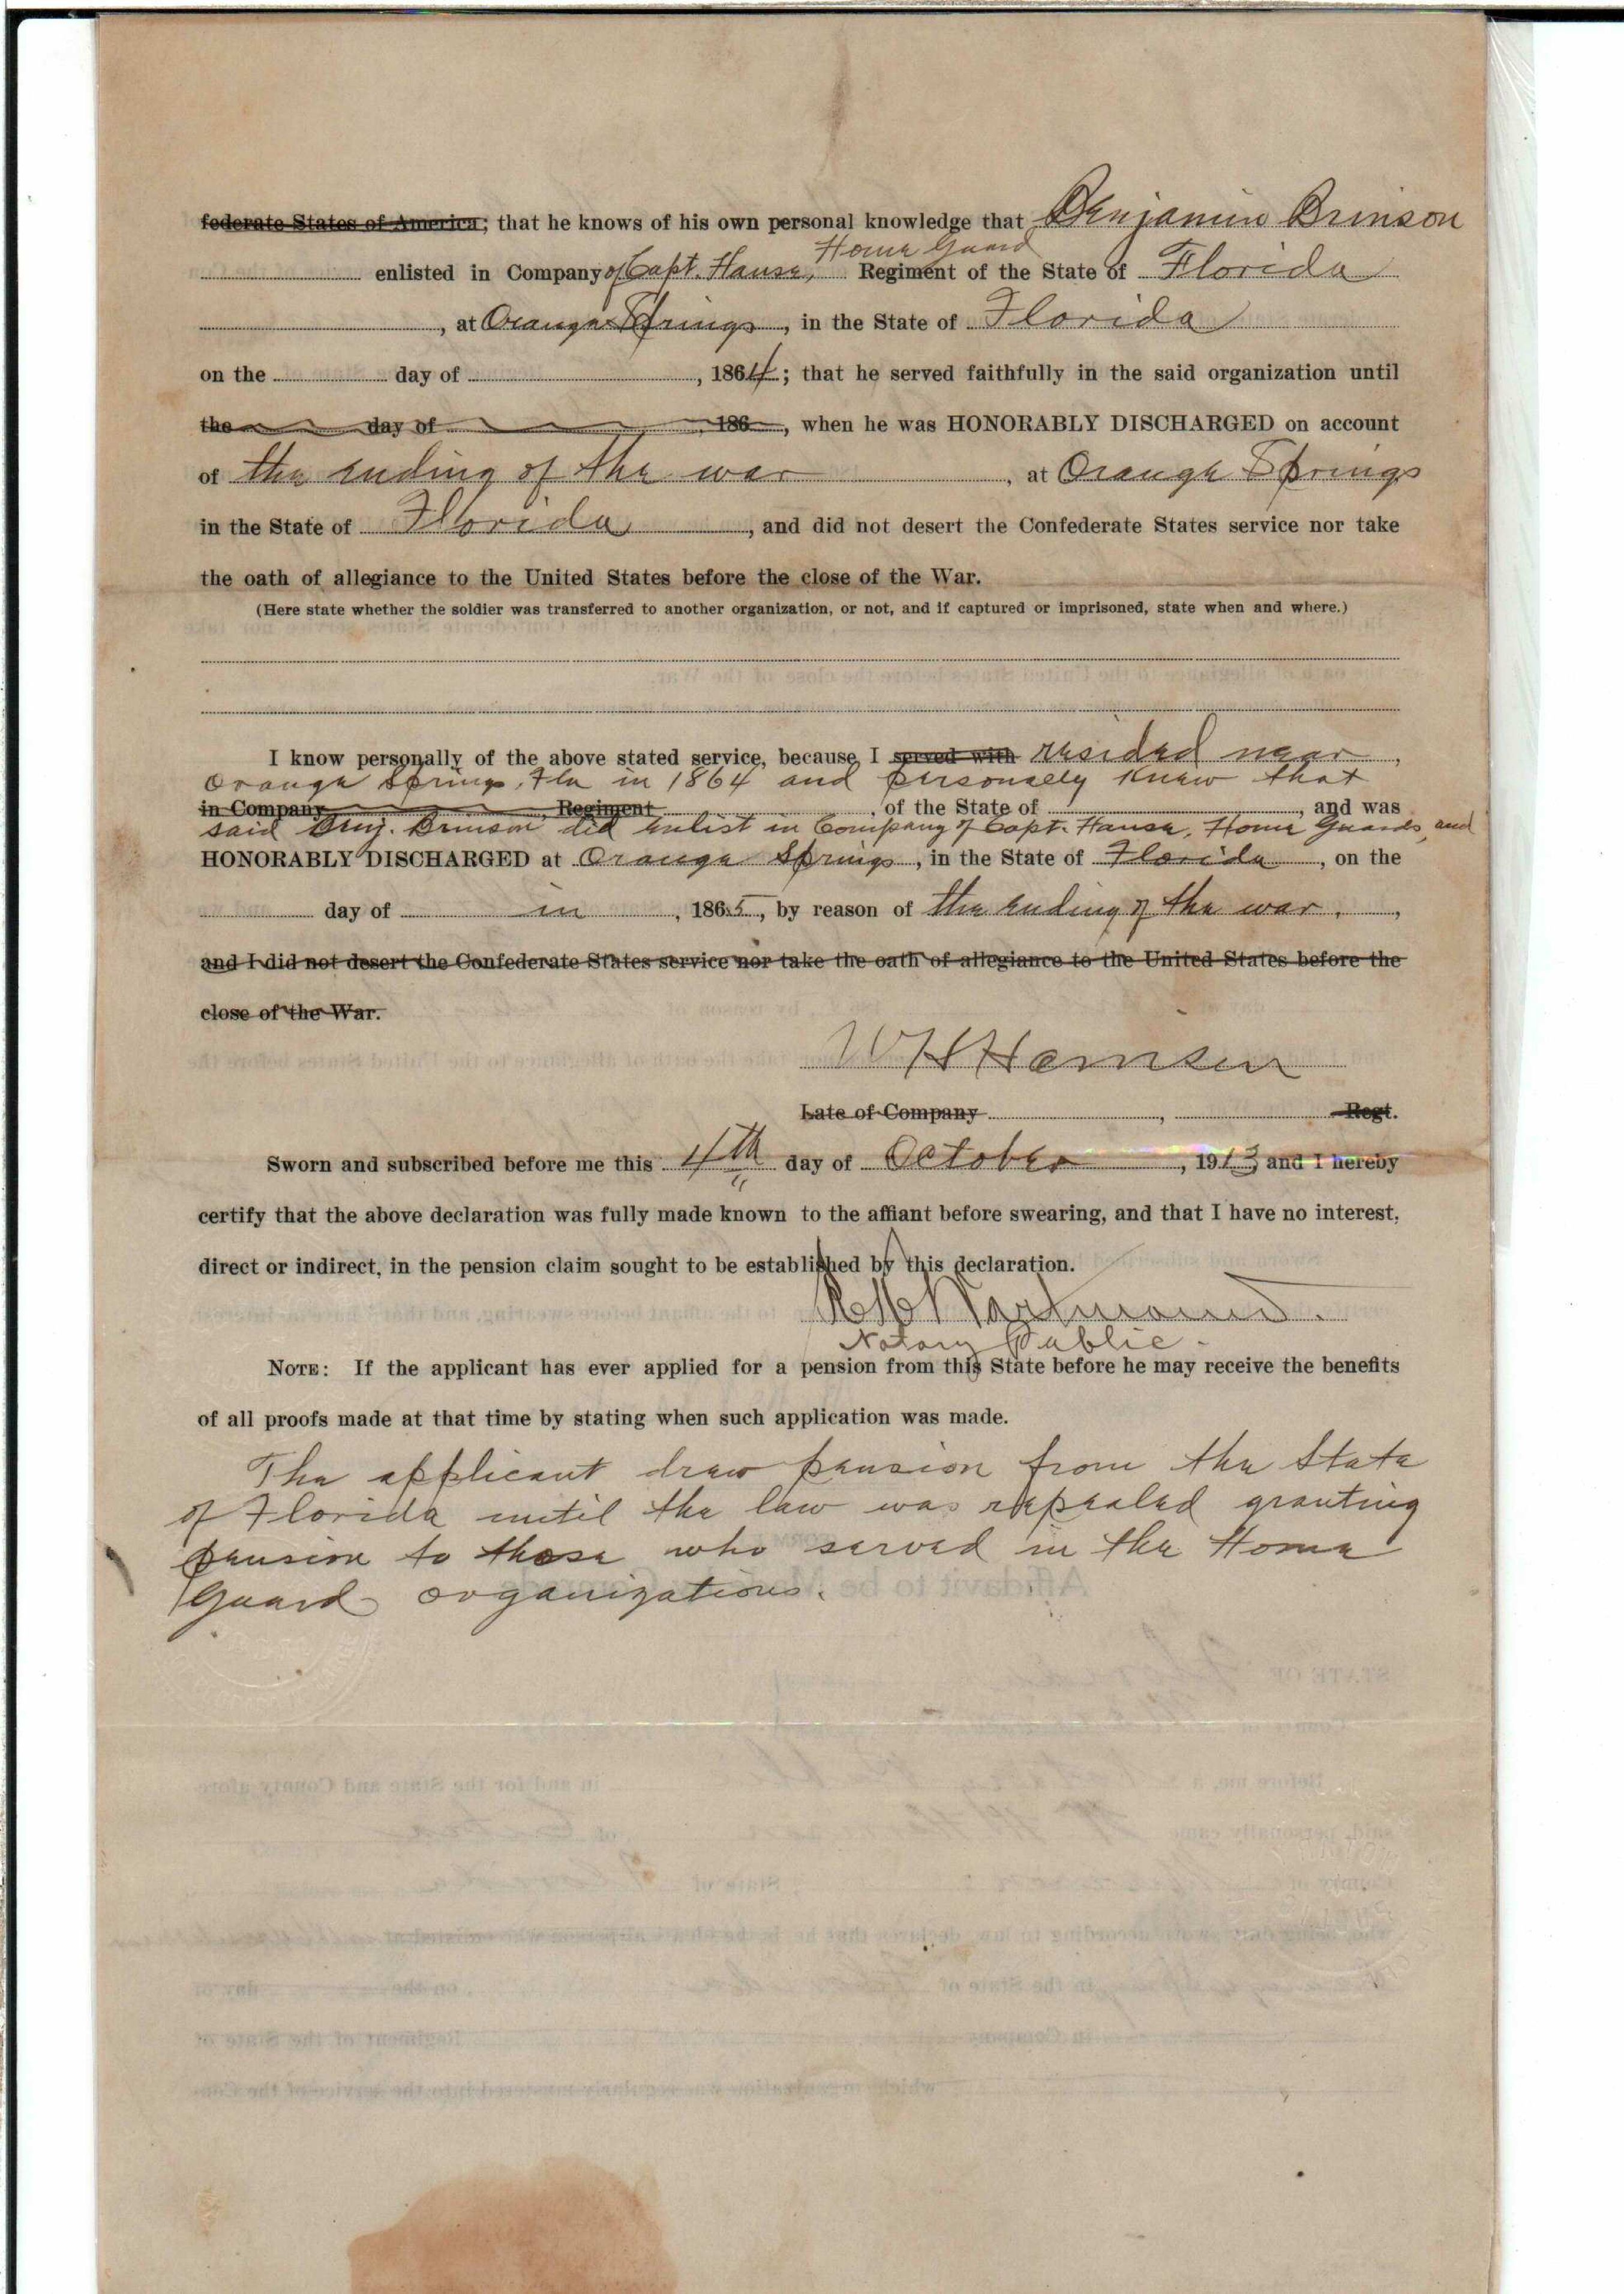 federate States of America; that he knows of his own personal knowledge that Benjamin Brinson
Home Guard
enlisted in Company of Capt. Hause, Regiment of the State of Florida
, at Orange Springs, in the State of Florida
on the day of , 1864; that he served faithfully in the said organization until
the day of , 186 , when he was HONORABLY DISCHARGED on account
of the ending of the war , at Orange Springs
in the State of Florida , and did not desert the Confederate States service nor take
the oath of allegiance to the United States before the close of the War.
(Here state whether the soldier was transferred to another organization, or not, and if captured or imprisoned, state when and where.)
I know personally of the above stated service, because I served with resided near ,
Orange Springs, Fla in 1864 and personally knew that
in Company , Regiment , of the State of , and was
said Benj. Brinson did enlist in Company of Capt. Hause, Home Guards, and
HONORABLY DISCHARGED at Orange Springs, in the State of Florida , on the
day of in , 1865, by reason of the ending of the war. ,
and I did not desert the Confederate States service nor take the oath of allegiance to the United States before the
close of the War.
W H
Late of Company , Regt.
Sworn and subscribed before me this 4th day of October , 1913, and I hereby
certify that the above declaration was fully made known to the affiant before swearing, and that I have no interest,
direct or indirect, in the pension claim sought to be established by this declaration.
Notary Public.
NOTE: If the applicant has ever applied for a pension from this State before he may receive the benefits
of all proofs made at that time by stating when such application was made.
The applicant drew pension from the State
of Florida until the law was repealed granting
pension to those who served in the Home
Guard organizations.